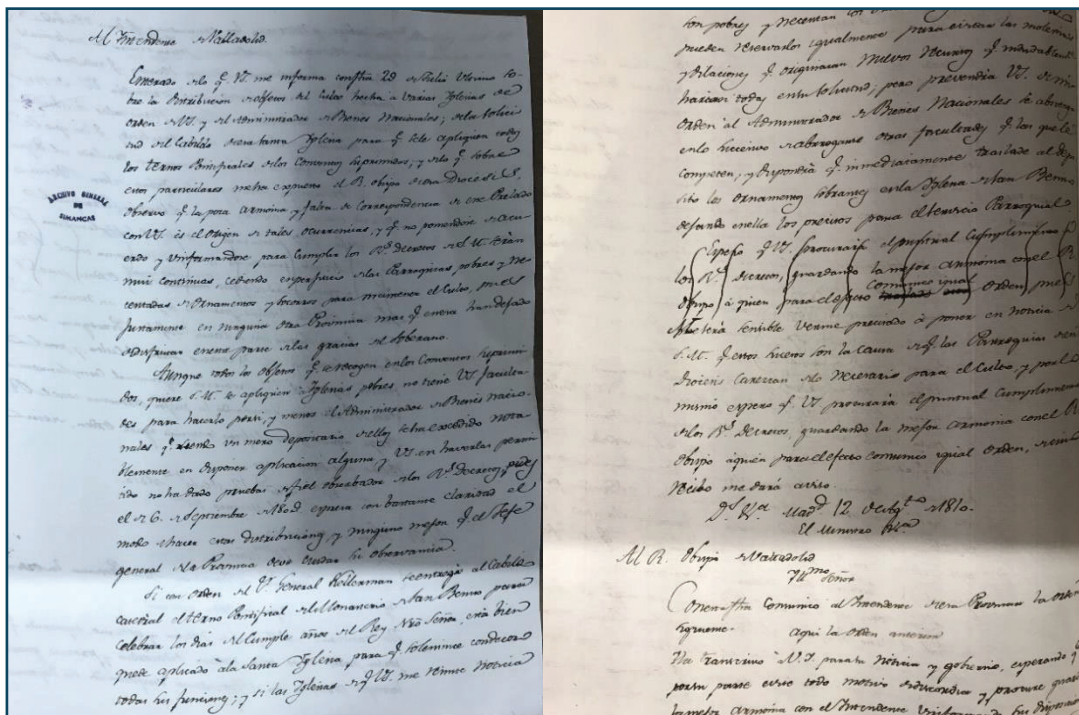 Al Yntendente de Valladolid.
Enterado de lo q.e VS. me informa con fha 29 de Julio ultimo so-
bre la distribucion de efectos del Culto hecha a varias Yglesias de
orden de VS. y del Administrador de Bienes Nacionales; de la solici-
tud del Cabildo de esa Santa Yglesia para q.e se le apliquen todos
los ternos Pontificales de los Conventos suprimidos, y de lo q.e sobre
estos particulares me ha expuesto el R. Obispo de esa Diocesis
Observo q.e la poca armonia y falta de correspondencia de ese Prelado
con VS. es el origen de tales ocurrencias, y q.e no poniendose de acu-
erdo y uniformandose para cumplir los R.s decretos de S. M.
continuas, cediendo en perjuicio de las Parroquias, pobres y ne-
cesitadas de Ornamentos y socorros para mantener el Culto,
en ninguna otra Provincia mas q.e en esa han dejado
de disfrutar en esta parte de las gracias del Soberano.
Aunque todos los efectos q.e se recogen en los Conventos suprimi-
dos, quiere S. M. se apliquen a Yglesias pobres, no tiene VS. faculta-
des para hacerlo por si, y menos el Administrador de Bienes nacio-
nales q.e siendo un mero depositario de ellos se ha excedido nota-
blemente en disponer aplicacion alguna, y VS. en haverlas permi-
tido no ha dado pruebas de fiel observador de los R.s Decretos, pues
el de 6 de Septiembre de 1809 expresa con bastante claridad el
modo de hacer estas distribuciones, y ninguno mejor q.e el Gefe
general de la Provincia debe cuidar su observancia.
Si con orden del General Kellerman se entregó al Cabildo
catedral el terno Pontifical del Monasterio de San Benito para
celebrar los dias del Cumple años del Rey Nro Señor, está bien
quede aplicado á la Santa Yglesia para q.e solemnice con decoro
todas sus funciones; y si las Yglesias de q.e VS. me remite noticia
son pobres y necesitan los
pueden reservarlos igualmente para evitar las molestias
y dilaciones q.e originarian nuevos recursos q.e indudablem.te
harian todas en su solicitud; pero prevendrá VS. de mi
orden al Administrador de Bienes Nacionales se abstenga
en lo sucesivo de abrogarse otras facultades q.e las que le
competen, y dispondrá q.e inmediatamente traslade al depo-
sito los ornamentos sobrantes en la Yglesia de San Benito
dejando en ella los precisos para el servicio Parroquial
Espero q.e VS. procurará el puntual cumplimiento
los R.s decretos, guardando la mejor armonia con el R.
Obispo á quien para el efecto comunico igual orden,
será sensible verme precisado á poner en noticia de
S. M. q.e estos sucesos son la causa de q.e las Parroquias
Diocesis carezcan de lo necesario para el Culto, y por lo
mismo espero q.e VS. procurará el puntual cumplimiento
de los R.s Decretos, guardando la mejor armonia con el R.
Obispo á quien para el efecto comunico igual orden,
recibo me dará aviso.
Mad.d 12 de Ag.to de 1810.
El Ministro
Al R. Obispo de Valladolid
Yll.mo Señor
Con esta fha comunico al Yntendente de esa Provincia la orden
siguiente. aqui la orden anterior
Y la transcrivo á V. I. para su noticia y gobierno, esperando q.e
por su parte evite todo motivo de discordia y procure guardar
la mejor armonia con el Yntendente
ARCHIVO GENERAL
DE
SIMANCAS